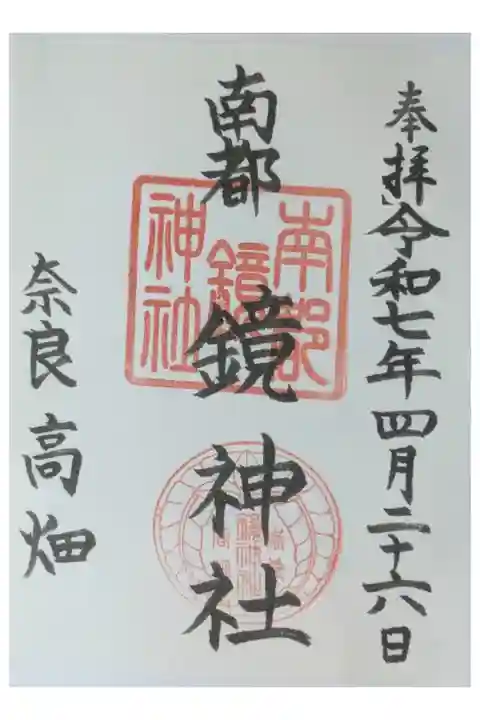 奉拝令和七年四月二十六日
南都鏡神社
南都
鏡
神社
奈良高畑